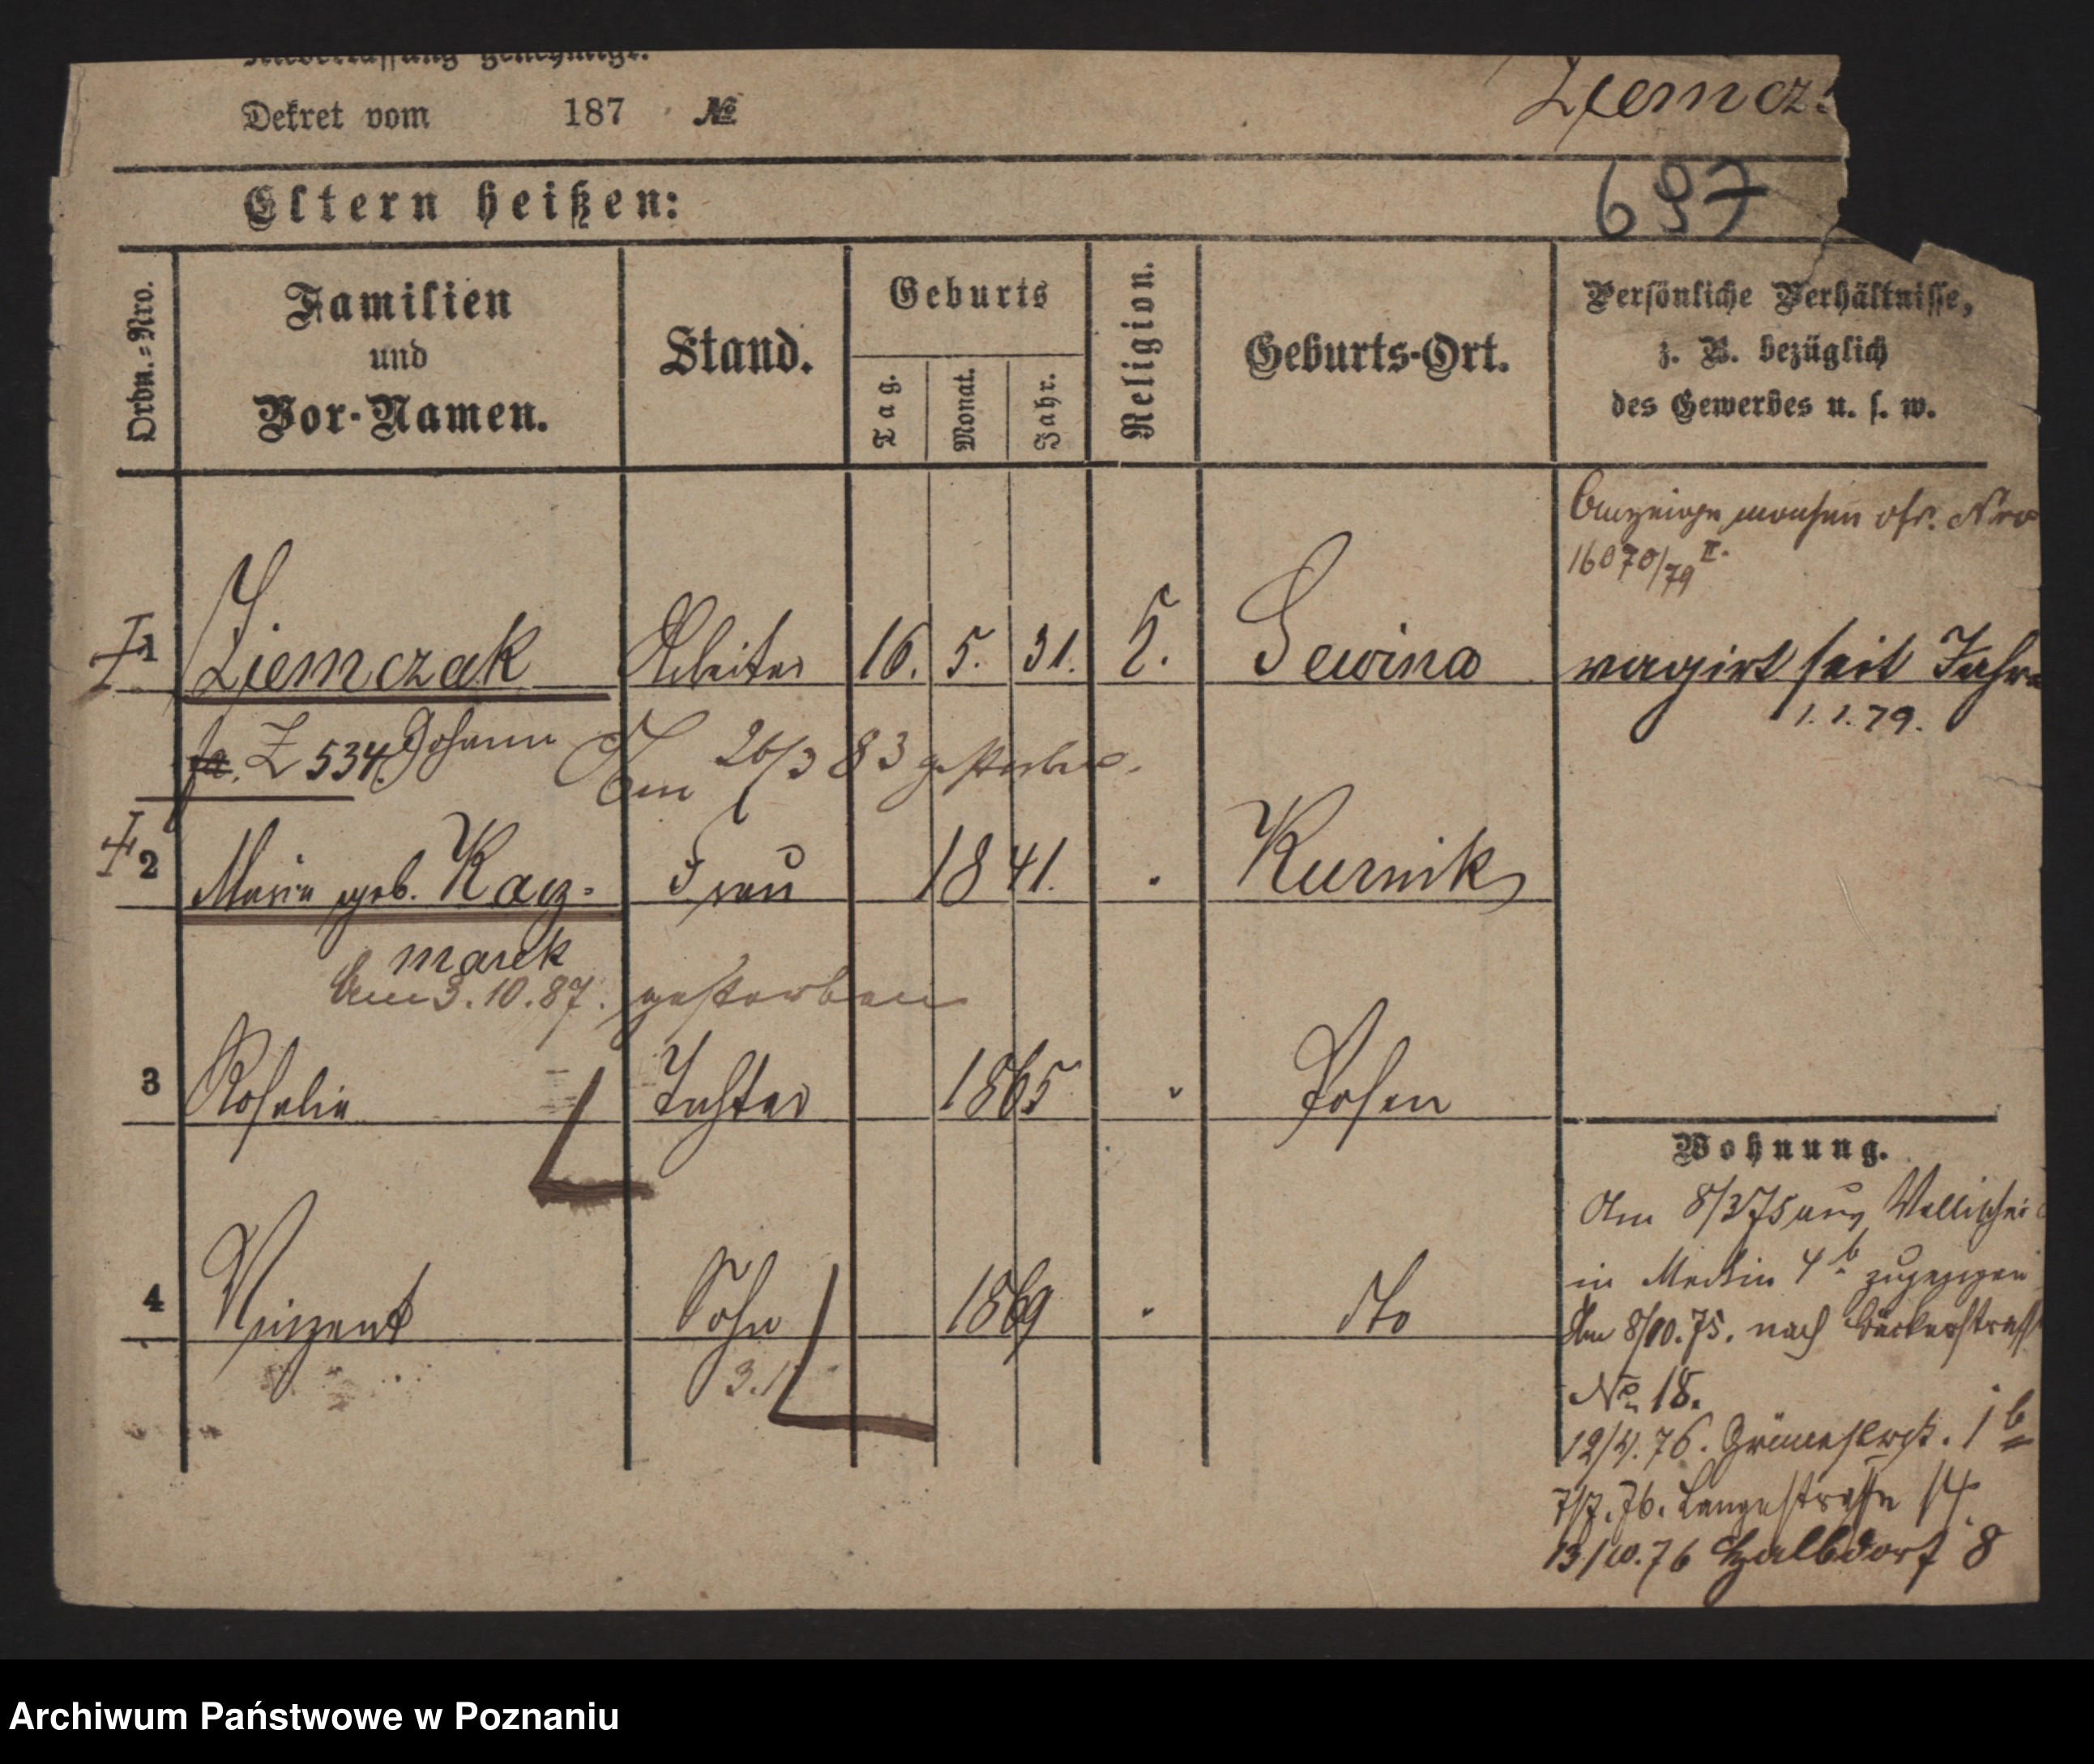 Niederlassung genehmigt.
Dekret vom 187 №
Ziemcz
Eltern heißen:
697
Ordn.=Nro.
Familien
und
Vor-Namen.
Stand.
Geburts
Tag.
Monat.
Jahr.
Religion.
Geburts-Ort.
Persönliche Verhältnisse,
z. B. bezüglich
des Gewerbes u. s. w.
Nro
16070/79 II.
1 Ziemczak Arbeiter 16. 5. 31. k. Gewina vagirt seit Jahre
1.1.79.
Z 534. Johann Am 26/3 83 gestorben.
2 Marie geb. Kacz- Frau 1841. " Kurnik
marek
Am 3.10.87. gestorben
3 Rosalie Tochter 1865 " Posen
Wohnung.
Am 8/3 75 aus Wallischei
4 Vinzent Sohn 1869 " dto
in 4b zugezogen
Am 8/10.75. nach Bäckerstraß
No 18.
3.
12/4.76. 1b
7/7.76. Langestrasse 14.
13/10.76 Halbdorf 8
Archiwum Państwowe w Poznaniu